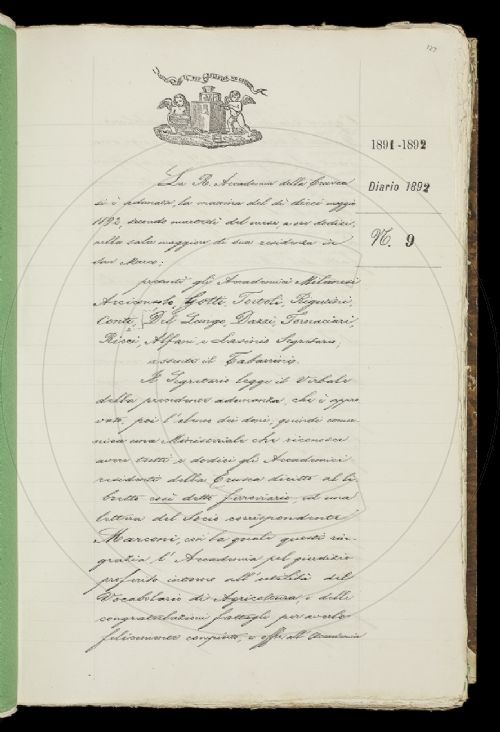 127
1891-1892
Diario 1892
N. 9
La R. Accademia della Crusca
si è adunata, la mattina del dì dieci maggio
1892, secondo martedì del mese, a ore dodici,
nella sala maggiore di sua residenza in
San Marco:
presenti gli Accademici Milanesi
Arciconsolo, Gotti, Tortoli, Rigutini,
Conti, Del Lungo, Dazzi, Tornaciari,
Ricci, Alfani, e Segretario;
assente il Tabarrini.
Il Segretario legge il Verbale
della precedente adunanza, che è appro
vato, poi l'elenco dei doni; quindi comu
nica una Ministeriale che riconosce
avere tutti e dodici gli Accademici
residenti della Crusca diritto al li
bretto così detto ferroviario, ed una
lettera del Socio corrispondente
Marconi, con la quale questi rin
grazia l'Accademia pel giudizio
proferito intorno all'utilità del
Vocabolario di Agricoltura, e delle
congratulazioni fattegli per averlo
felicemente compiuto, e offre all'Accademia